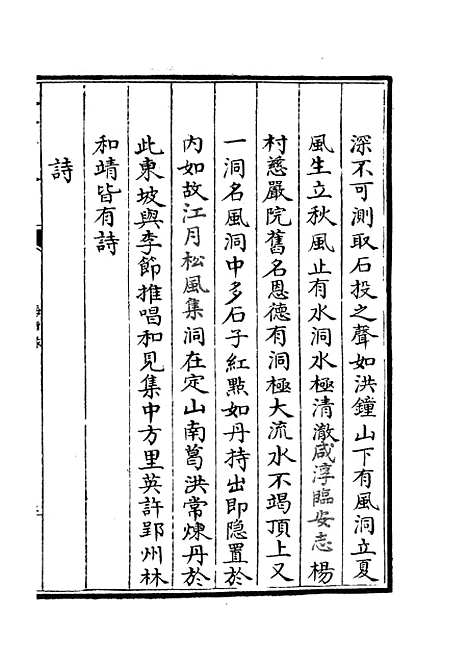 深不可測取石投之聲如洪鐘山下有風洞立夏
風生立秋風止有水洞水極清澈咸淳臨安志楊
村慈嚴院舊名恩德有洞極大流水不竭頂上又
一洞名風洞中多石子紅點如丹持出即隐置於
內如故江月松風集洞在定山南葛洪常煉丹於
此東坡與李節推唱和見集中方里英許郢州林
和靖皆有詩
詩